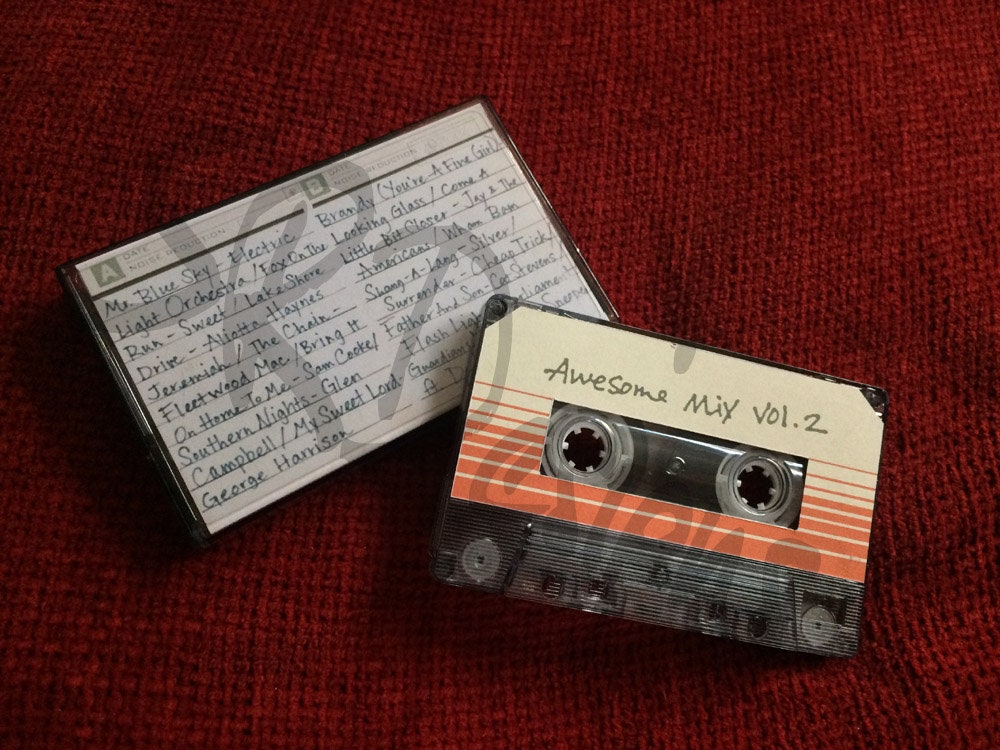 A DATE
NOISE REDUCTION
Mr. Blue Sky - Electric
Light Orchestra / Fox On The
Run - Sweet / Lake Shore
Drive - Aliotta Haynes
Jeremiah / The Chain -
Fleetwood Mac / Bring It
On Home To Me - Sam Cooke /
Southern Nights - Glen
Campbell / My Sweet Lord -
George Harrison
B DATE
NOISE REDUCTION
Brandy (You're A Fine Girl) -
Looking Glass / Come A
Little Bit Closer - Jay & The
Americans / Wham Bam
Shang-A-Lang - Silver /
Surrender - Cheap Trick /
Father And Son - Cat Stevens /
Flash Light
Guardians
Awesome Mix Vol. 2